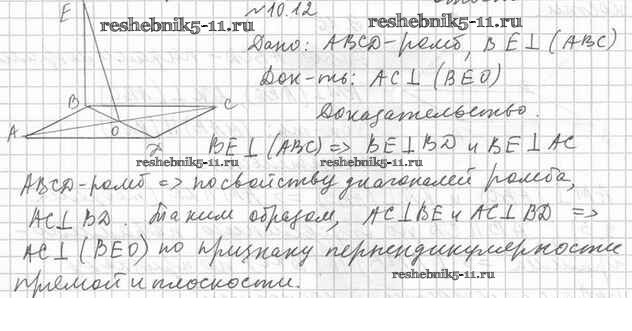 №10.12
E
reshebnik5-11.ru
reshebnik5-11.ru
Дано: ABCD-ромб, BE⊥(ABC)
Док-ть: AC⊥(BEO)
Доказательство.
B
C
A
O
D
BE⊥(ABC) => BE⊥BD и BE⊥AC
reshebnik5-11.ru
reshebnik5-11.ru
ABCD-ромб => по свойству диагоналей ромба,
AC⊥BD. Таким образом, AC⊥BE и AC⊥BD =>
AC⊥(BEO) по признаку перпендикулярности
прямой и плоскости.
reshebnik5-11.ru